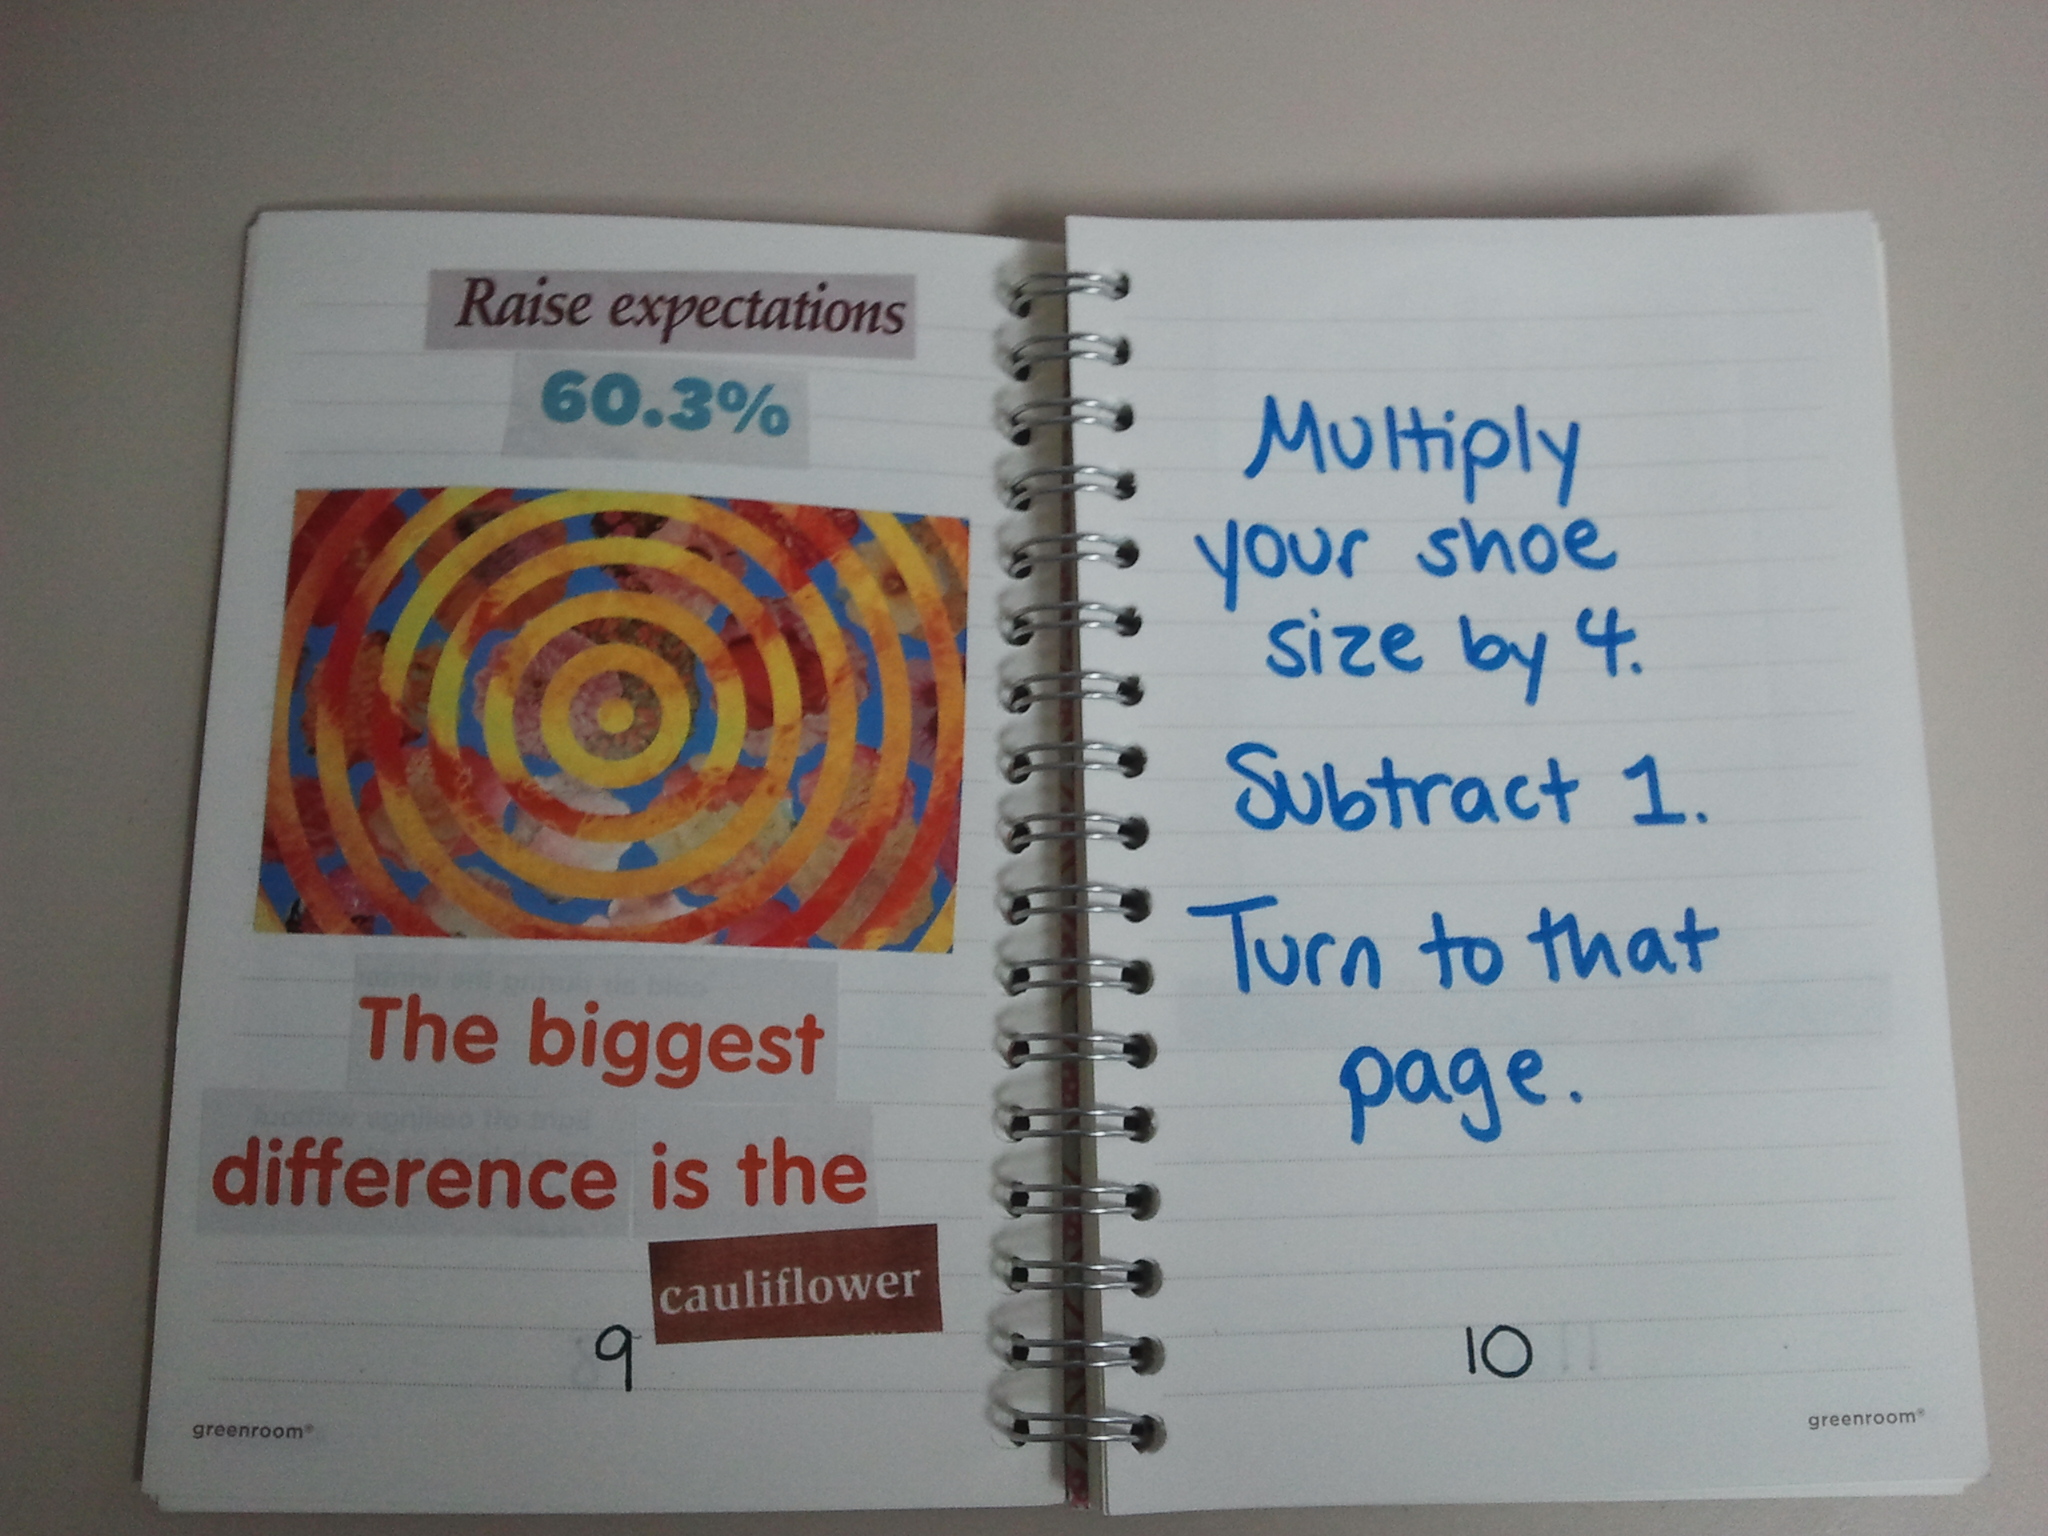 Raise expectations
60.3%
The biggest
difference is the
cauliflower
9
greenroom®
Multiply
your shoe
size by 4.
Subtract 1.
Turn to that
page.
10
greenroom®